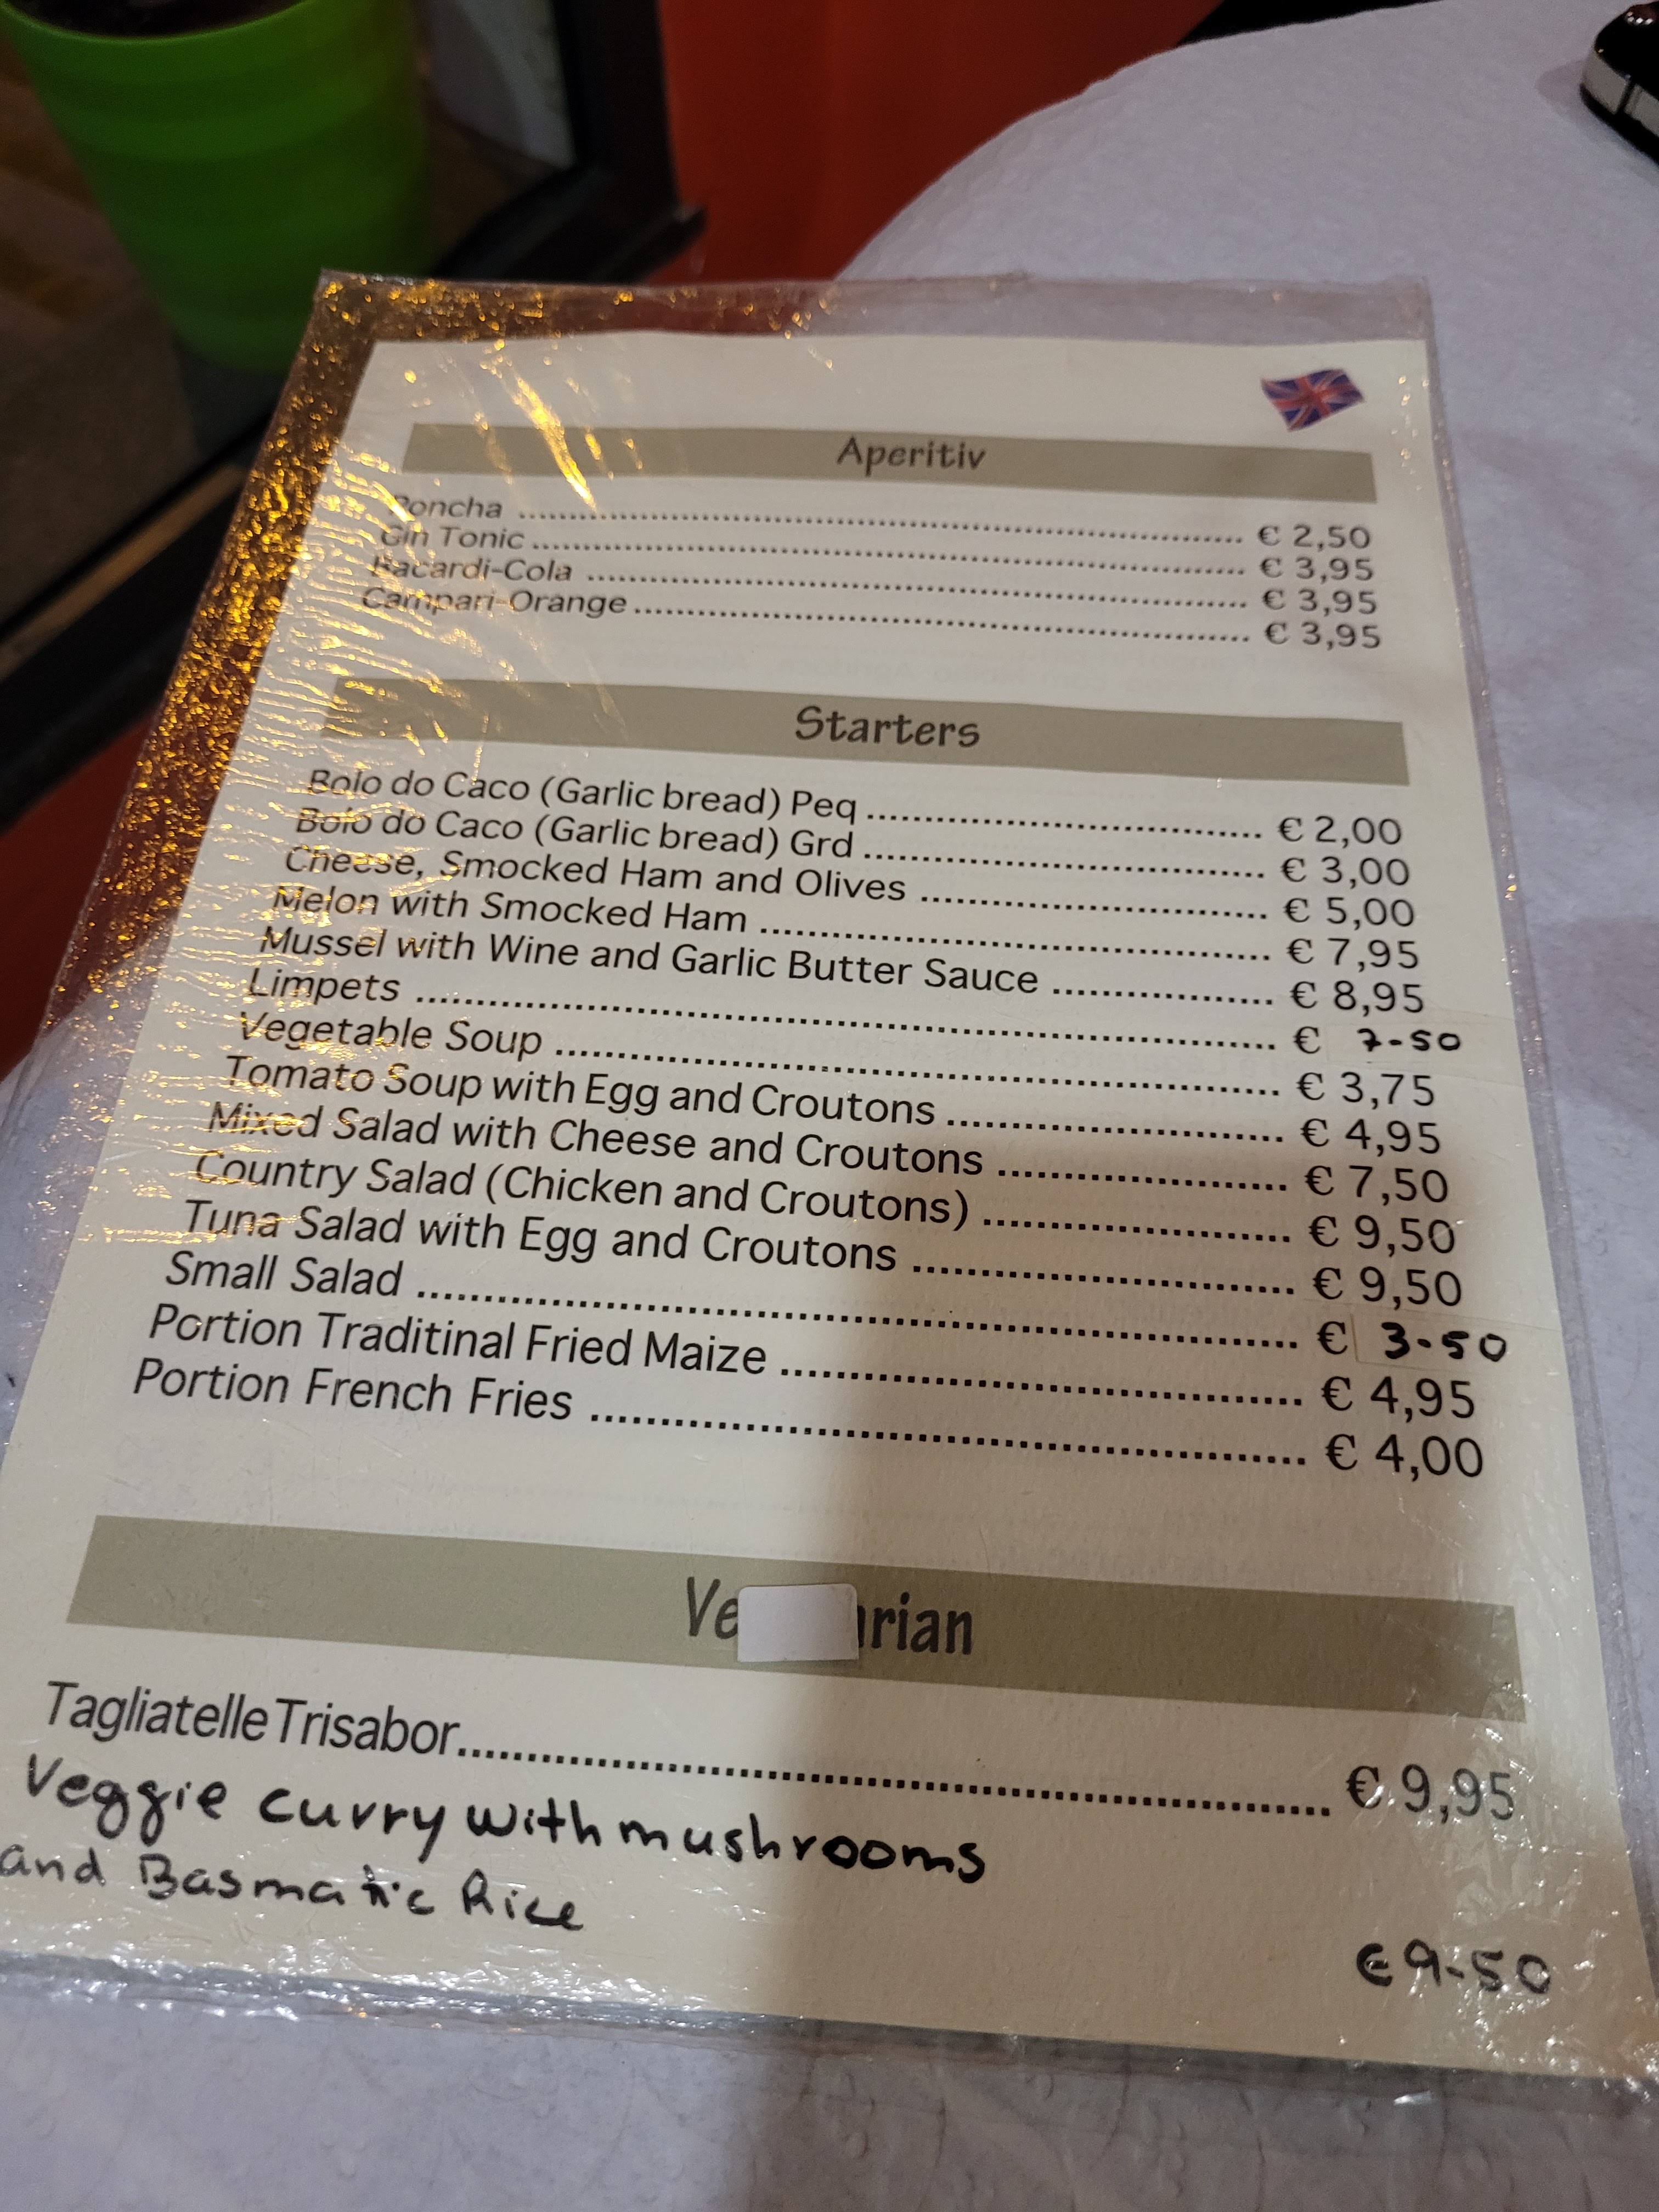 Aperitiv
Poncha ........ € 2,50
Gin Tonic ........ € 3,95
Bacardi-Cola ........ € 3,95
Campari-Orange ........ € 3,95
Starters
Bolo do Caco (Garlic bread) Peq ........ € 2,00
Bolo do Caco (Garlic bread) Grd ........ € 3,00
Cheese, Smocked Ham and Olives ........ € 5,00
Melon with Smocked Ham ........ € 7,95
Mussel with Wine and Garlic Butter Sauce ........ € 8,95
Limpets ........ € 7-50
Vegetable Soup ........ € 3,75
Tomato Soup with Egg and Croutons ........ € 4,95
Mixed Salad with Cheese and Croutons ........ € 7,50
Country Salad (Chicken and Croutons) ........ € 9,50
Tuna Salad with Egg and Croutons ........ € 9,50
Small Salad ........ € 3-50
Portion Traditinal Fried Maize ........ € 4,95
Portion French Fries ........ € 4,00
Ve arian
Tagliatelle Trisabor ........ € 9,95
Veggie curry with mushrooms
and Basmatic Rice
€ 9-50